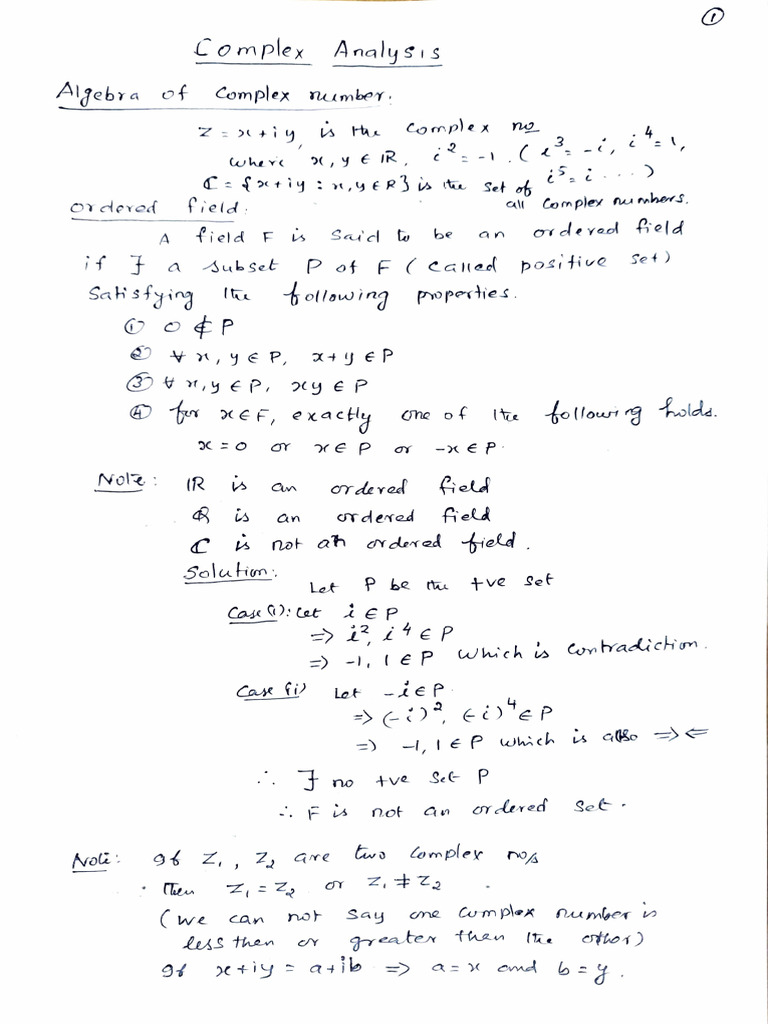 ①
Complex Analysis
Algebra of Complex number.
Z = x+iy, is the Complex no
where x, y ∈ ℝ, i² = -1. ( i³ = -i, i⁴ = 1,
ℂ = {x+iy : x,y ∈ R} is the set of i⁵ = i ... )
all Complex numbers.
Ordered field:
A field F is said to be an ordered field
if ∃ a subset P of F ( called positive set)
Satisfying the following properties.
① 0 ∉ P
② ∀ x, y ∈ P, x+y ∈ P
③ ∀ x, y ∈ P, xy ∈ P
④ for x ∈ F, exactly one of the following holds.
x = 0 or x ∈ P or -x ∈ P.
Note: ℝ is an ordered field
Q is an ordered field
ℂ is not an ordered field.
Solution:
Let P be the +ve set
Case (i): Let i ∈ P
=> i², i⁴ ∈ P
=> -1, 1 ∈ P which is contradiction.
Case (ii) Let -i ∈ P.
=> (-i)², (-i)⁴ ∈ P
=> -1, 1 ∈ P which is also =><=
∴ ∃ no +ve set P
∴ F is not an ordered set.
Note: If Z₁, Z₂ are two complex nos
Then Z₁ = Z₂ or Z₁ ≠ Z₂
(we can not say one complex number is
less then or greater then the other)
If x+iy = a+ib => a = x and b = y.